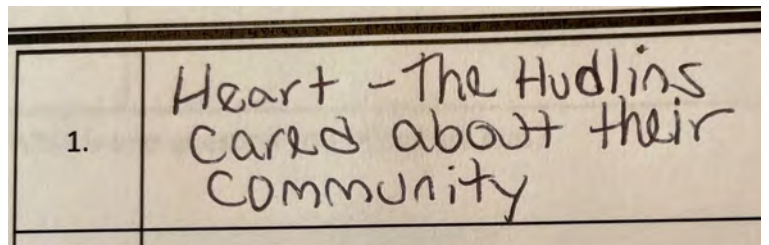 1.
Heart - The Hudlins
cared about their
community